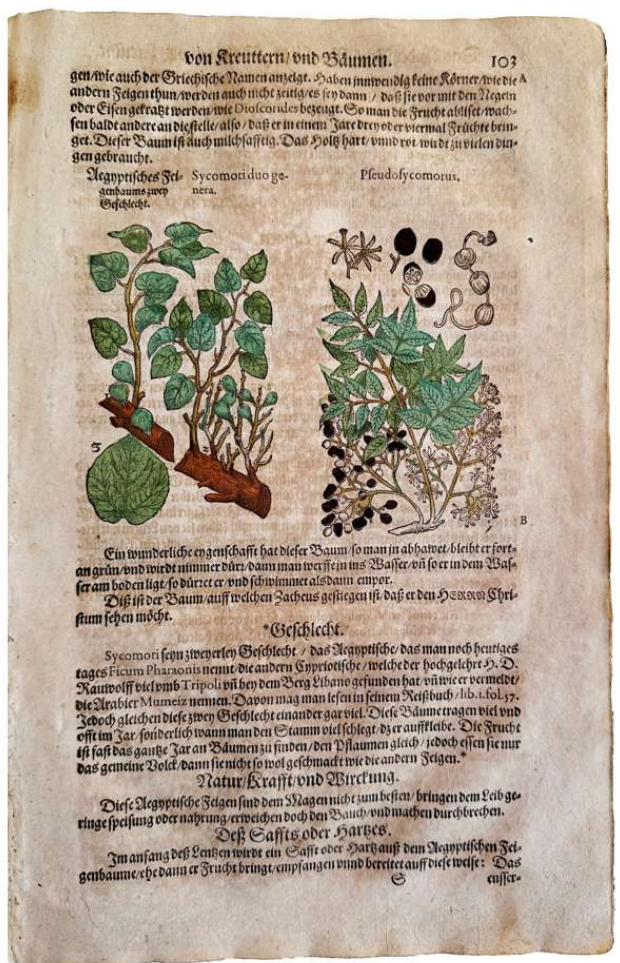 von Kreuttern/ vnd Bäumen. 103
gen/wie auch der Griechische Namen anzeigt. Haben jnnwendig keine Körner/wie die A
andern Feigen thun/werden auch nicht zeitig/es sey dann / daß sie vor mit den Negeln
oder Eisen gekratzt werden/wie Dioscorides bezeugt. So man die Frucht abliset/wach-
sen baldt andere an die stelle/also/ daß er in einem Jare drey oder viermal Früchte brin-
get. Dieser Baum ist auch milchsafftig. Das Holtz hart/ vnnd rot/wirdt zu vielen din-
gen gebraucht.
Aegyptisches Fei-
genbaums zwey
Geschlecht.
Sycomori duo ge-
nera.
Pseudosycomorus.
3
2
1
B
Ein wunderliche eygenschafft hat dieser Baum/so man in abhawet/bleibt er fort-
an grün/vnd wirdt nimmer dürr/dann man werffe in ins Wasser/vñ so er in dem Was-
ser am boden ligt/so dürret er/vnd schwimmet als dann empor.
Diß ist der Baum/auff welchen Zacheus gestiegen ist/daß er den HERRN Chri-
stum sehen möcht.
*Geschlecht.
Sycomori seyn zweyerley Geschlecht / das Aegyptische/das man noch heutiges
tages Ficum Pharaonis nennt/die andern Cypriotische/welche der hochgelehrt H. D.
Rauwolff viel vmb Tripoli vñ bey dem Berg Libano gefunden hat/vñ wie er vermeldt/
die Arabier Mumeiz nennen. Davon mag man lesen in seinem Reißbuch/lib.1.fol.57.
Jedoch gleichen diese zwey Geschlecht einander gar viel. Diese Bäume tragen viel vnd
offt im Jar/sonderlich wann man den Stamm viel schlegt/dz er auffkleibe. Die Frucht
ist fast das gantze Jar an Bäumen zu finden/den Pflaumen gleich/jedoch essen sie nur
das gemeine Volck/dann sie nicht so wol geschmackt wie die andern Feigen.*
Natur/Krafft/vnd Wirckung.
Diese Aegyptische Feigen sind dem Magen nicht zum besten/bringen dem Leib ge-
ringe speisung oder nahrung/erweichen doch den Bauch/vnd machen durchbrechen.
Deß Saffts oder Hartzes.
Im anfang deß Lentzen wirdt ein Safft oder Hartz auß dem Aegyptischen Fei-
genbaume/ehe dann er Frucht bringt/empfangen vnnd bereitet auff diese weise: Das
S eusser-